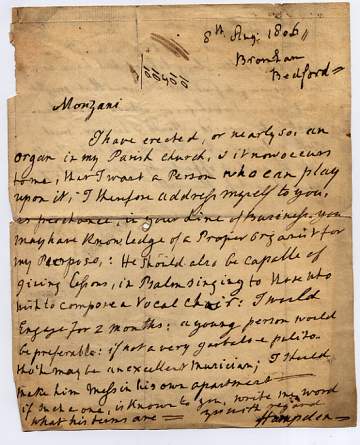 8th Aug: 1806
Bromham
Bedford =
Monzani
I have erected, or nearly so, an
organ in my Parish church, & it now occurs
to me, that I want a Person who can play
upon it, I therefore address myself to you,
as perchance, in your Line of Business, you
may have Knowledge of a Proper organist for
my Purpose,: He Should also be capable of
giving Lessons, in Psalm singing to those who
wish to compose a Vocal Choir: I would
Engage for 2 months: a young person would
be preferable: if not a very
tho' he may be an excellent musician; I should
make him mess in his own apartment
if such a one, is Known to you, write me word
what his terms are = yrs with regard
Hampden =